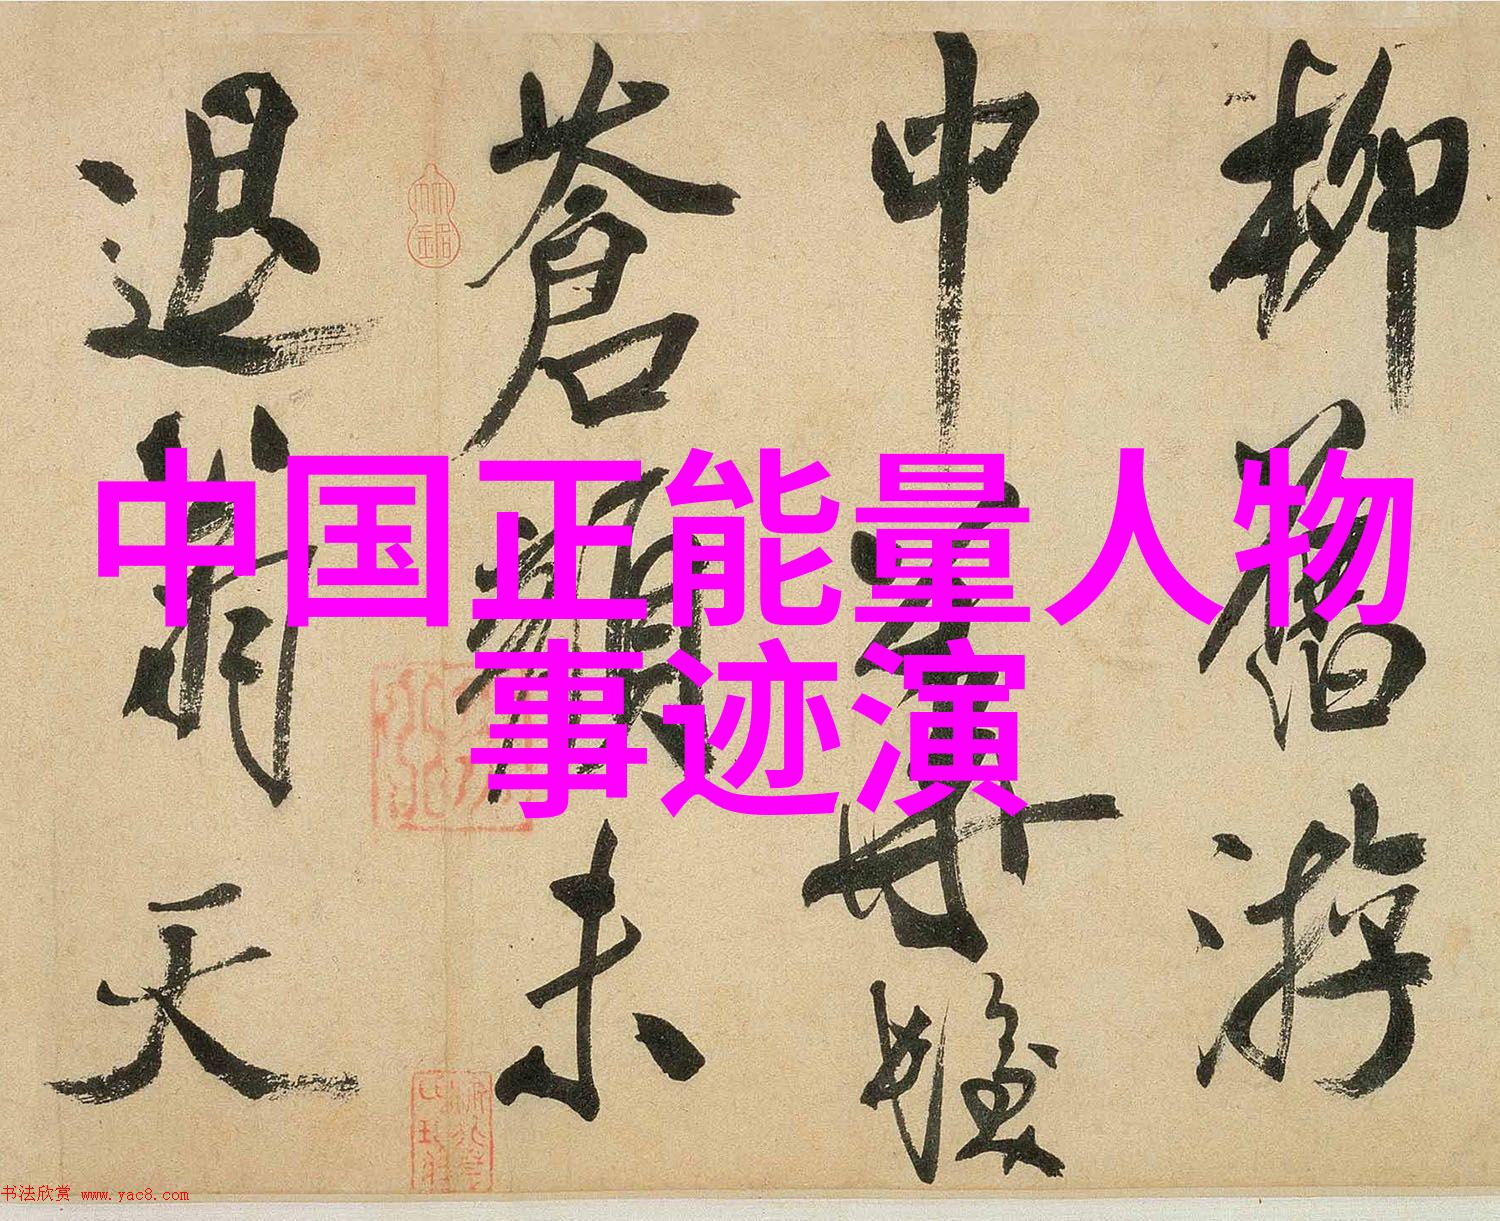 柳舊游
中華每醆
蒼顏未
退翁天
中国正能量人物
事迹演
书法欣赏 www.yac8.com